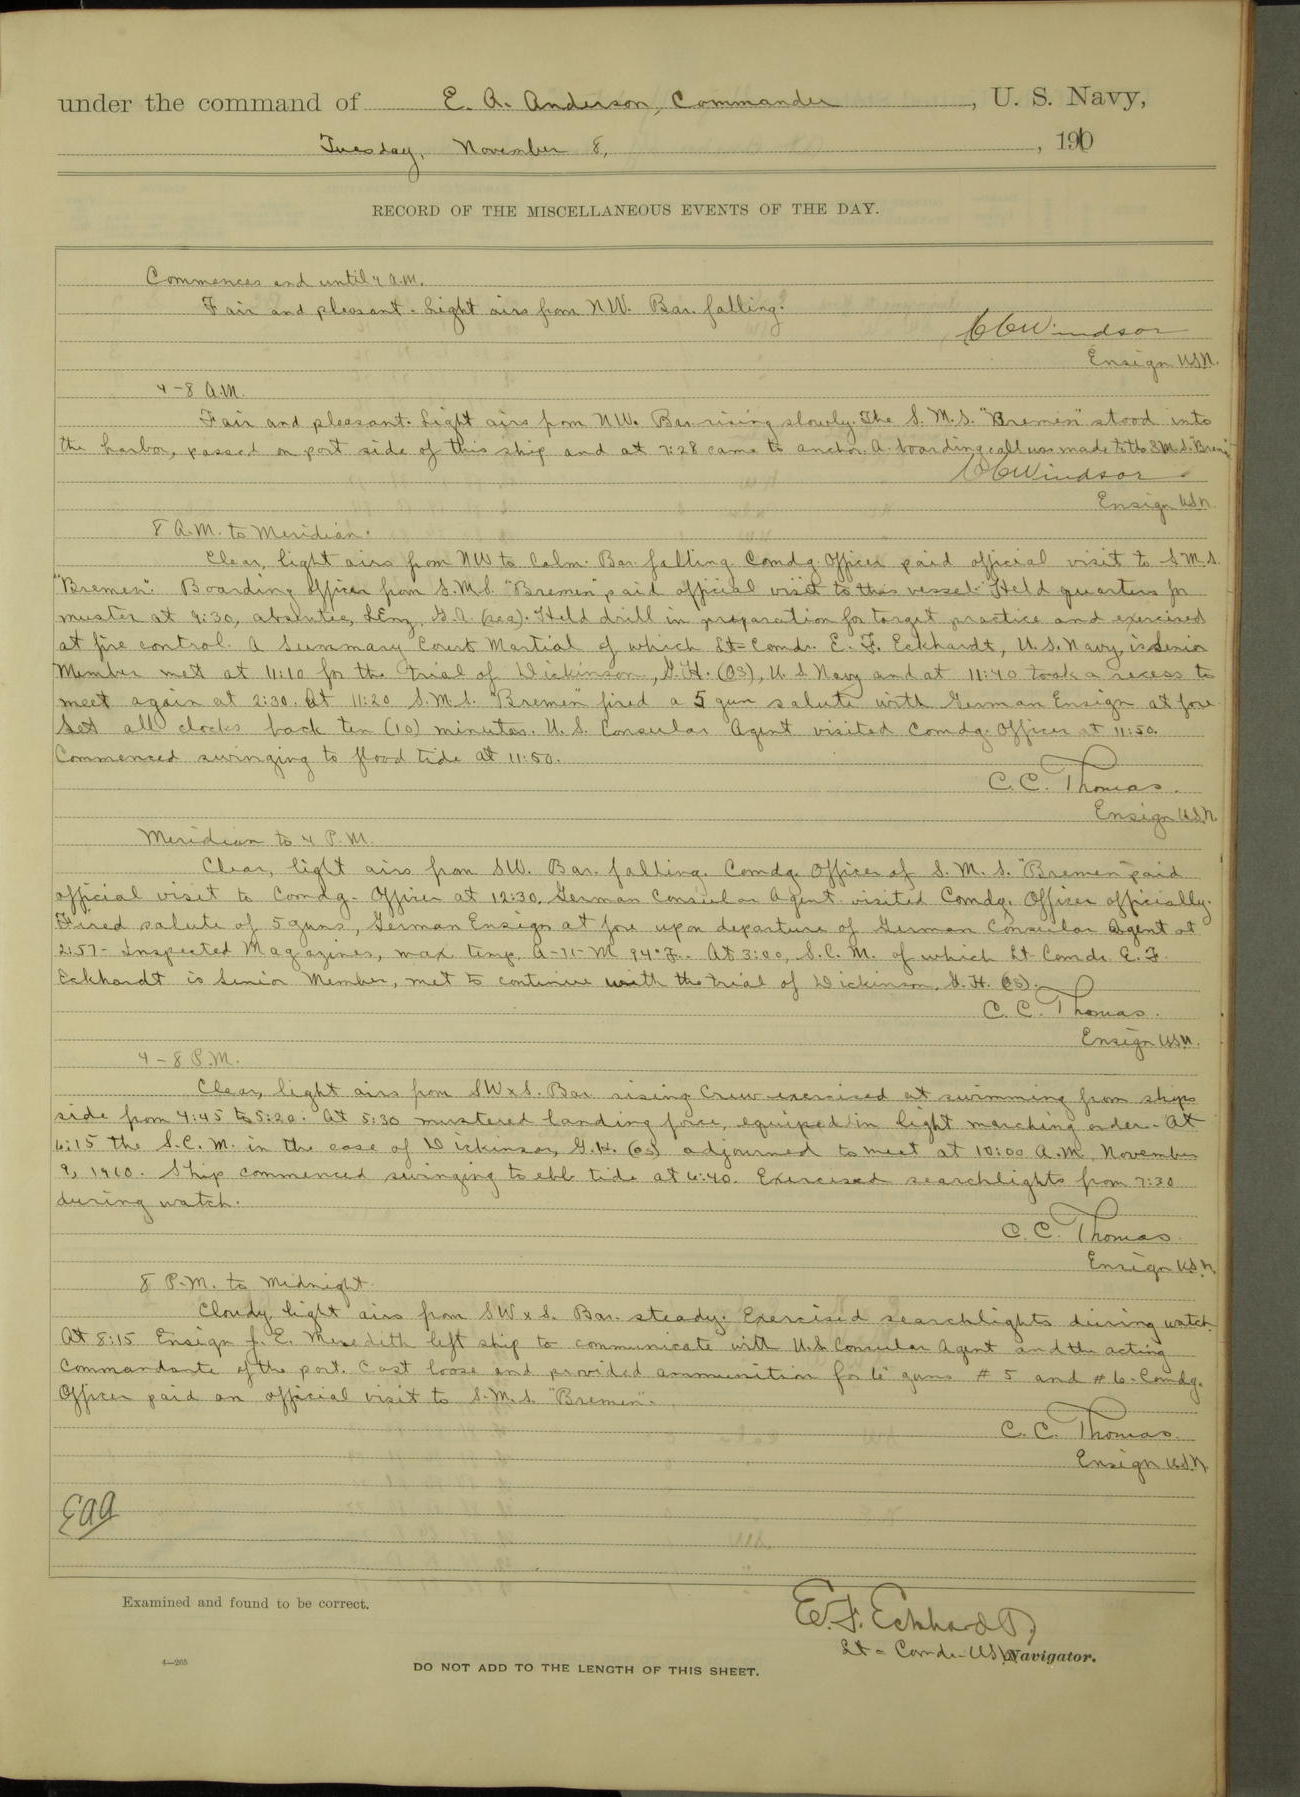 under the command of E. A. Anderson, Commander, U. S. Navy,
Tuesday, November 8, , 1910
RECORD OF THE MISCELLANEOUS EVENTS OF THE DAY.
Commences and until 4 a.m.
Fair and pleasant. Light airs from NW. Bar. falling.
CC Windsor
Ensign USN.
4-8 A.M.
Fair and pleasant. Light airs from NW. Bar. rising slowly. The S.M.S. "Bremen" stood into
the harbor, passed on port side of this ship and at 7:28 came to anchor. A boarding call was made to the S.M.S. "Bremen"
CC Windsor
Ensign USN
8 A.M. to Meridian.
Clear, light airs from NW to Calm. Bar. falling. Comdg. Officer paid official visit to S.M.S.
"Bremen". Boarding officer from S.M.S. "Bremen" paid official visit to this vessel. Held quarters for
muster at 9:30, absentee, G.A. Held drill in preparation for target practice and exercised
at fire control. A Summary Court Martial of which Lt-Comdr. E. F. Eckhardt, U.S. Navy, is Senior
Member met at 11:10 for the trial of Dickinson, G.H. (OS), U S Navy and at 11:40 took a recess to
meet again at 2:30. At 11:20 S.M.S. "Bremen" fired a 5 gun salute with German Ensign at fore.
Set all clocks back ten (10) minutes. U. S. Consular Agent visited Comdg. Officer at 11:50.
Commenced swinging to flood tide at 11:50.
C. C. Thomas.
Ensign USN.
Meridian to 4 P.M.
Clear, light airs from SW. Bar. falling. Comdg. Officer of S. M. S. "Bremen" paid
official visit to Comdg. Officer at 12:30. German Consular Agent visited Comdg. Officer officially.
Fired salute of 5 guns, German Ensign at fore upon departure of German Consular Agent at
2:57- Inspected Magazines, max temp. A-71-M 94°F. At 3:00, S.C.M. of which Lt-Comdr. E. F.
Eckhardt is Senior Member, met to continue with the trial of Dickinson, G.H. (OS).
C. C. Thomas.
Ensign USN.
4-8 P.M.
Clear, light airs from SWxS. Bar rising Crew exercised at swimming from ships
side from 4:45 to 5:20. At 5:30 mustered landing force, equiped in light marching order. At
6:15 the S.C.M. in the case of Dickinson, G.H. (OS) adjourned to meet at 10:00 A.M. November
9, 1910. Ship commenced swinging to ebb tide at 6:40. Exercised searchlights from 7:30
during watch.
C. C. Thomas
Ensign USN.
8 P.M. to Midnight.
Cloudy light airs from SWxS. Bar. steady. Exercised searchlights during watch.
At 8:15 Ensign J. E. Meredith left ship to communicate with U.S. Consular Agent and the acting
Commandante of the port. Cast loose and provided ammunition for 6" guns #5 and #6. Comdg.
Officer paid an official visit to S.M.S. "Bremen".
C. C. Thomas.
Ensign USN.
EAA
Examined and found to be correct.
E. F. Eckhardt,
Lt-Comdr-USN Navigator.
4—265
DO NOT ADD TO THE LENGTH OF THIS SHEET.